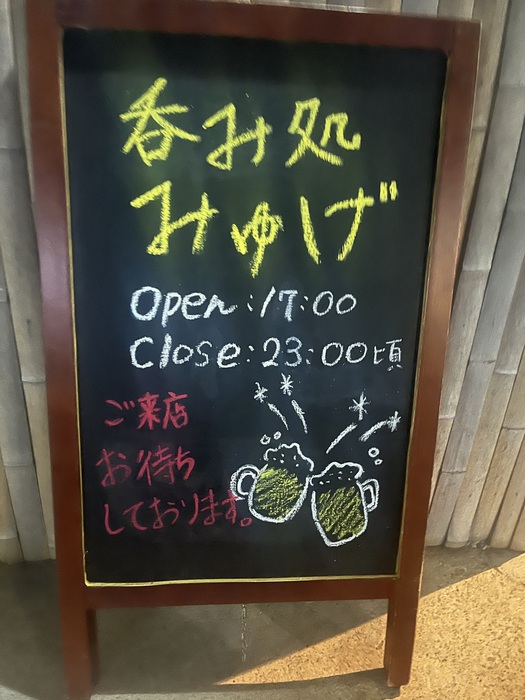 呑み処
みゆげ
Open:17:00
Close:23:00頃
ご来店
お待ち
しております。